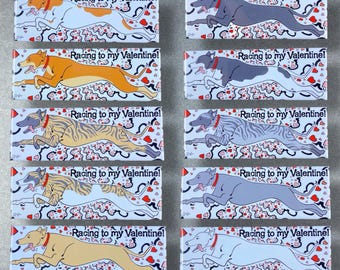 Racing to my Valentine!
Racing to my Valentine!
Racing to my Valentine!
Racing to my Valentine!
Racing to my Valentine!
Racing to my Valentine!
Racing to my Valentine!
Racing to my Valentine!